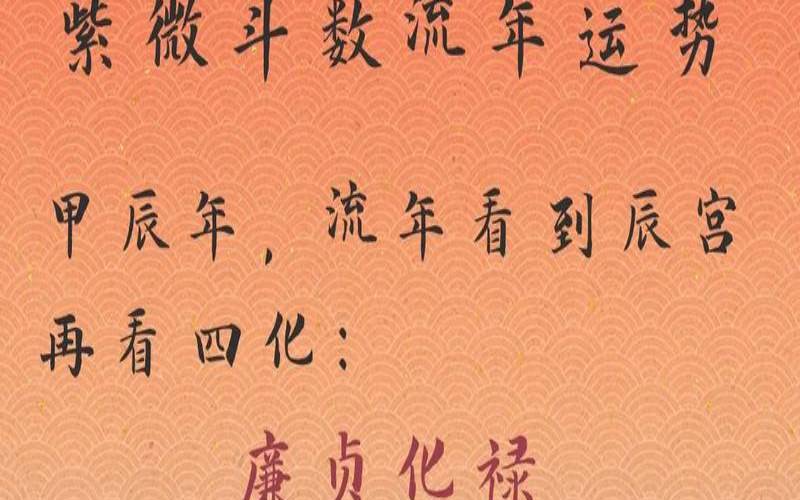 紫微斗数流年运势
甲辰年,流年看到辰宫
再看四化:
廉贞化禄